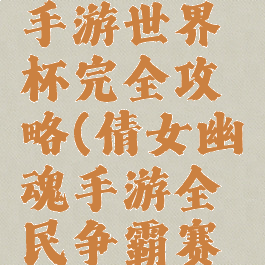 手游世界
杯完全攻
略(倩女幽
魂手游全
民争霸赛